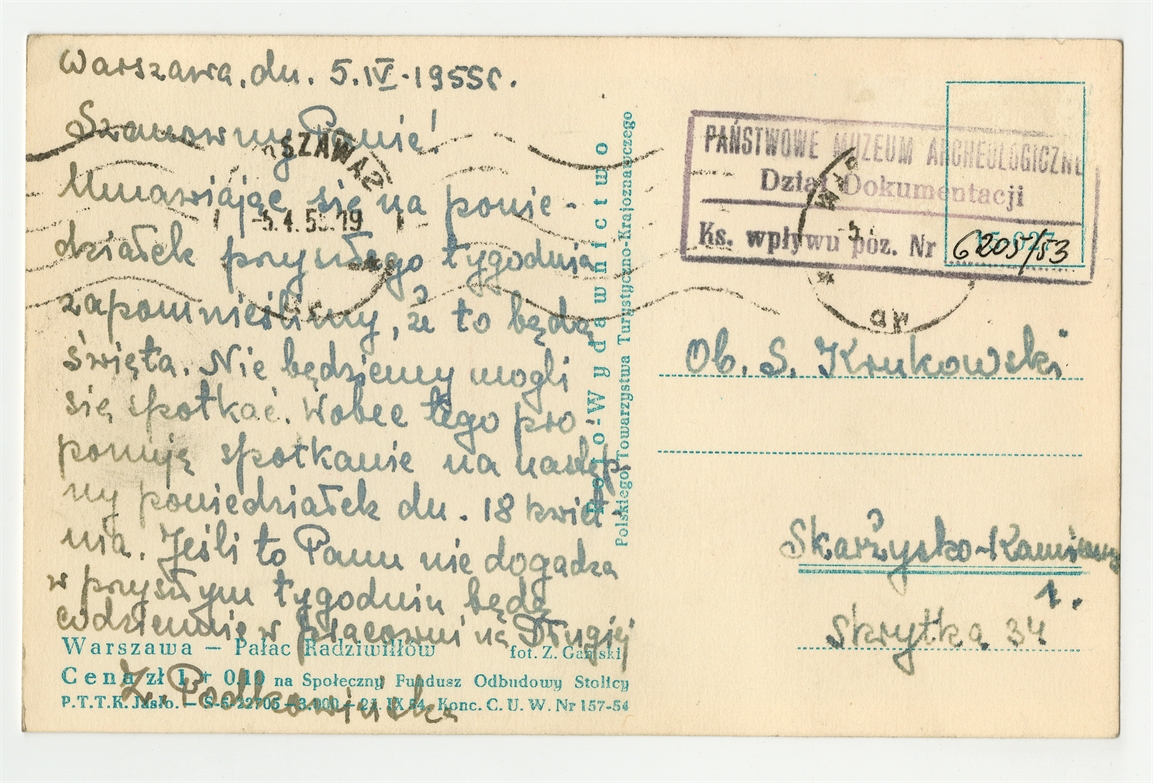 Warszawa, dn. 5.IV.1955r.
Szanowny Panie!
Umawiając się na ponie-
działek przyszłego tygodnia
zapomnieliśmy, że to będą
święta. Nie będziemy mogli
się spotkać. Wobec tego pro-
ponuję spotkanie na następ-
ny poniedziałek dn. 18 kwiet-
nia. Jeśli to Panu nie dogadza
w przyszłym tygodniu będę
codziennie w pracowni na Długiej
Z. Podkowińska
Warszawa — Pałac Radziwiłłów
fot. Z. Gamski
Cena zł 1 + 0,10 na Społeczny Fundusz Odbudowy Stolicy
P.T.T.K. Jasło. — S-5-22705 — 3.000 — 21. IX 54. Konc. C. U. W. Nr 157-54
Foto-Wydawnictwo
Polskiego Towarzystwa Turystyczno-Krajoznawczego
-5.4.55.19
PAŃSTWOWE MUZEUM ARCHEOLOGICZNE
Dział Dokumentacji
Ks. wpływu poz. Nr 6205/53
Ob. S. Krukowski
Skarżysko-Kamienna
1.
Skrytka 34